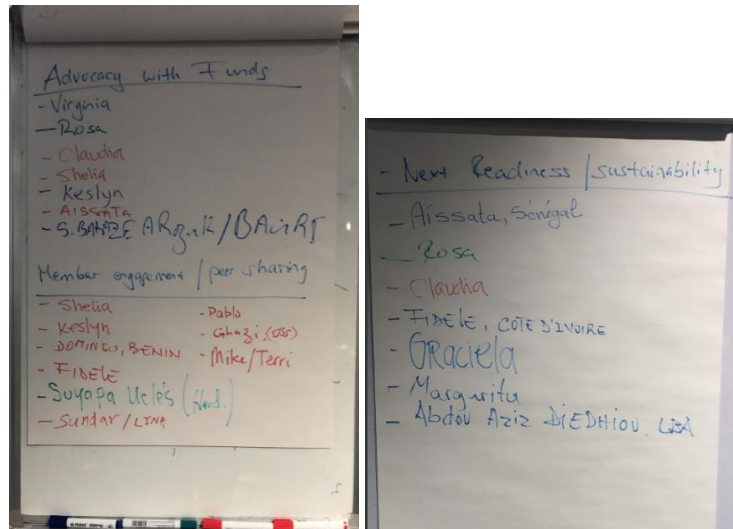 Advocacy with Funds
- Virginia
- Rosa
- Claudia
- Shelia
- Keslyn
- AISSATA
- S. BAKAZE
Member engagement / peer sharing
- Shelia
- Keslyn
- DOMINGO, BENIN
- FIDELE
- Suyapa Uclés (Hond.)
- Sundar / LINA
- Pablo
- Ghazi (OSS)
- Mike/Terri
- Next Readiness / sustainability
- Aissata, Sénégal
- Rosa
- Claudia
- FIDELE, COTE D'IVOIRE
- GRaciela
- Margarita
- Abdou Aziz DIEDHIOU.